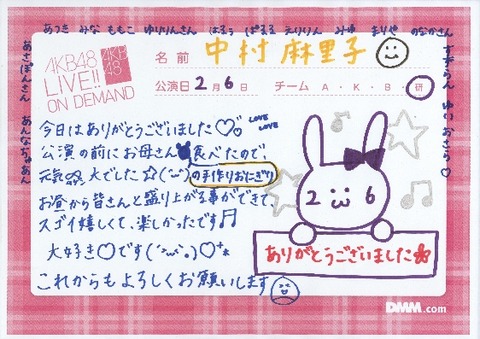 あつき みな ももこ ゆりりんさん はるぅ ぱるる えりりん みゆ まりや のなかさん
あさぽんさん あんなぢゅあん
すずらん ゆい おさらぅ♡
AKB48
LIVE!!
ON DEMAND
AKB
48
名前 中村麻里子
公演日 2月6日 チーム A・K・B・研
今日はありがとうございました♡
LOVE
LOVE
公演の前にお母さん食べたので、
の手作りおにぎり
元気大でした☆(´ω`)
お昼から皆さんと盛り上がる事ができて、
スゴイ嬉しくて、楽しかったです♬
大好き♡です(´ω`)♡
これからもよろしくお願いします
2 ω 6
ありがとうございました
DMM.com